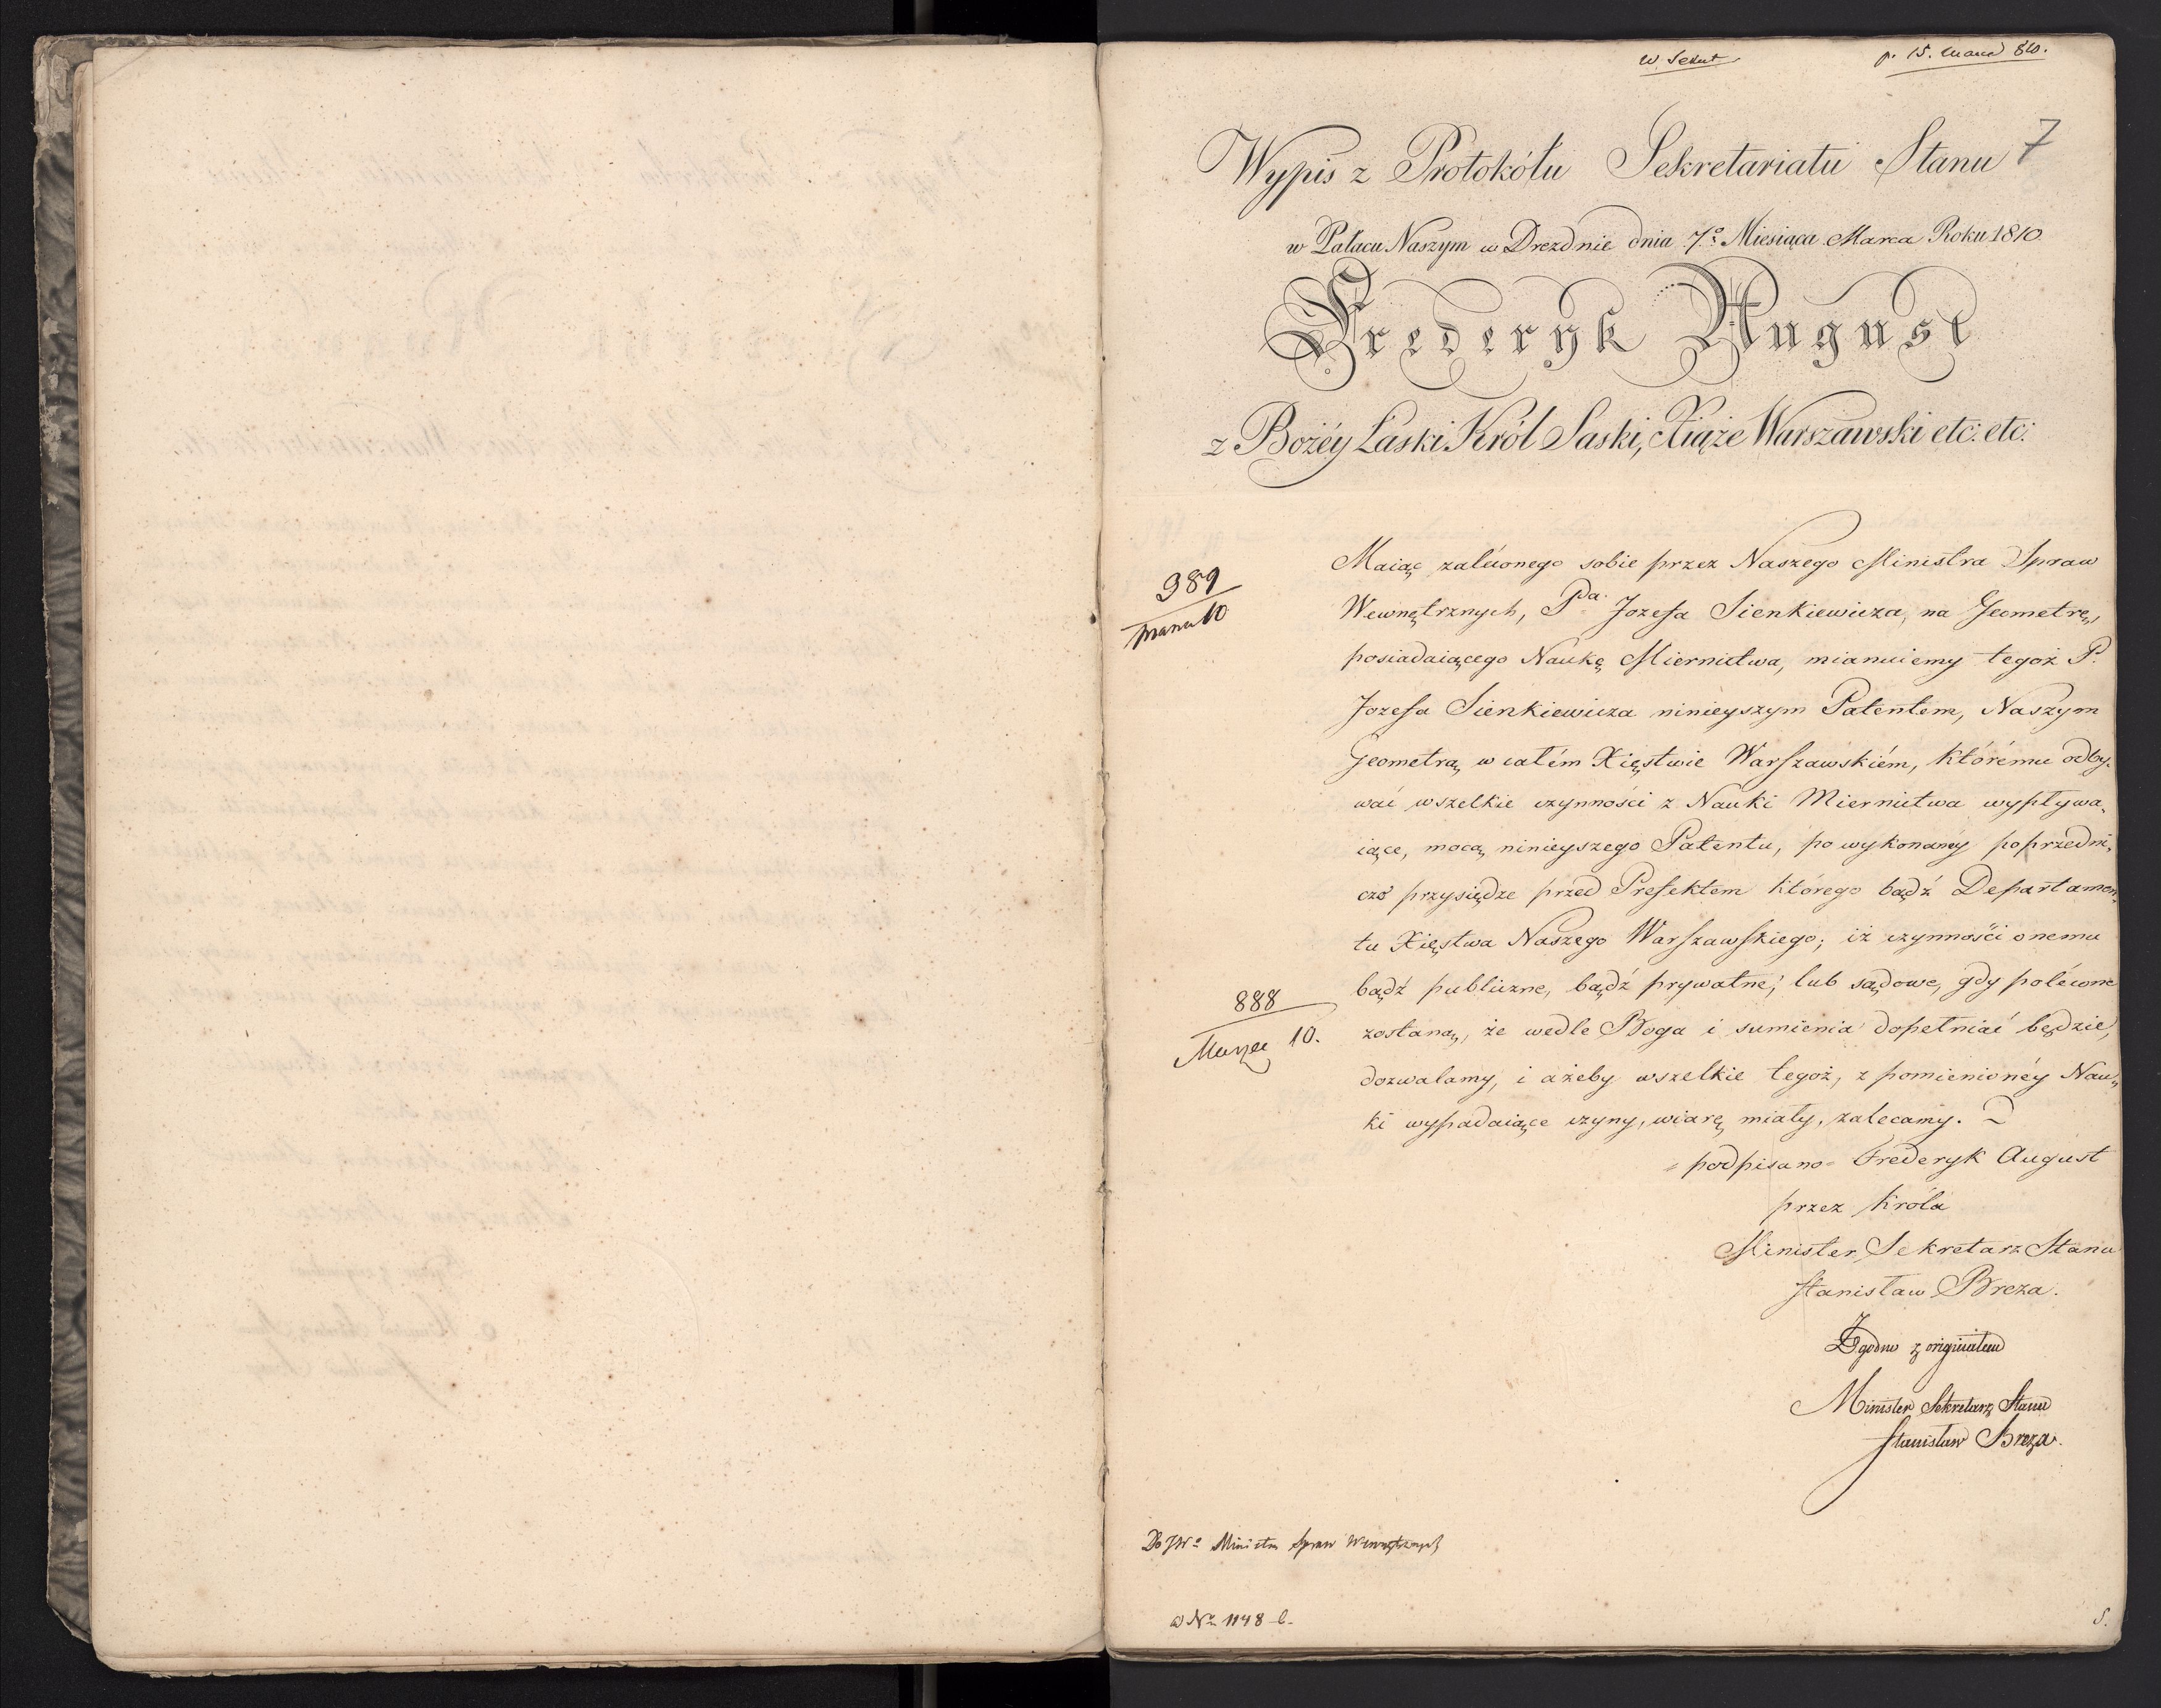 W. Sekret
p. 15. Marca 810.
7
Wypis z Protokółu Sekretariatu Stanu
w Pałacu Naszym w Dreznie dnia 7º Miesiąca Marca Roku 1810
Frederyk August
z Bożéy Łaski Król Saski, Xiąże Warszawski etc: etc:
Maiąc zaleconego sobie przez Naszego Ministra Spraw
Wewnętrznych, Pa. Jozefa Sienkiewicza, na Geometrę,
posiadaiącego Naukę Miernictwa, mianuiemy tegoż P.
Jozefa Sienkiewicza ninieyszym Patentem, Naszym
Geometrą, w całém Xięstwie Warszawskiém, którému odby-
wać wszelkie czynności z Nauki Miernictwa wypływa-
iące, mocą ninieyszego Patentu, po wykonanéy poprzedni-
czo przysiędze przed Prefektem którego bądź Departamen-
tu Xięstwa Naszego Warszawskiego; iż czynności onemu
bądź publiczne, bądź prywatne, lub sądowe, gdy polécone
zostaną, że wedle Boga i sumienia dopełniać będzie,
dozwalamy, i ażeby wszelkie tegoż, z pomienionéy Nau-
ki wypadaiące czyny, wiarę miały, zalecamy.
389
Marca 10
888
Marzec 10.
= podpisano = Frederyk August
przez Króla
Minister Sekretarz Stanu
Stanisław Breza.
Zgodno z originałem
Minister Sekretarz Stanu
Stanisław Breza.
Do JWº Ministra Spraw Wewnętrznych
ad Nº 1148
5.